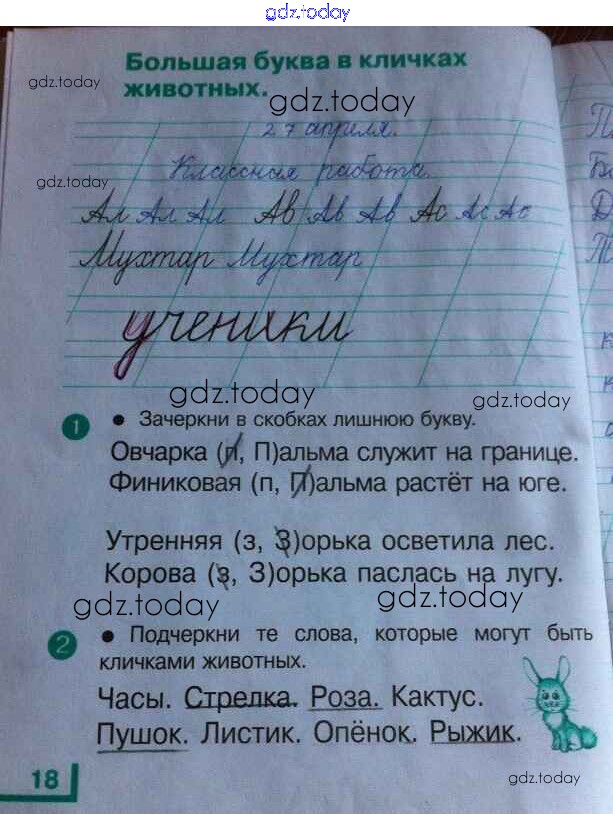 gdz.today
Большая буква в кличках
животных.
gdz.today
gdz.today
27 апреля.
Классная работа.
gdz.today
Ал Ал Ал Ав Ав Ав Ас Ас Ас
Мухтар Мухтар
ученики
gdz.today
gdz.today
1 • Зачеркни в скобках лишнюю букву.
Овчарка (п, П)альма служит на границе.
Финиковая (п, П)альма растёт на юге.
Утренняя (з, З)орька осветила лес.
Корова (з, З)орька паслась на лугу.
gdz.today
gdz.today
2 • Подчеркни те слова, которые могут быть
кличками животных.
Часы. Стрелка. Роза. Кактус.
Пушок. Листик. Опёнок. Рыжик.
18
gdz.today